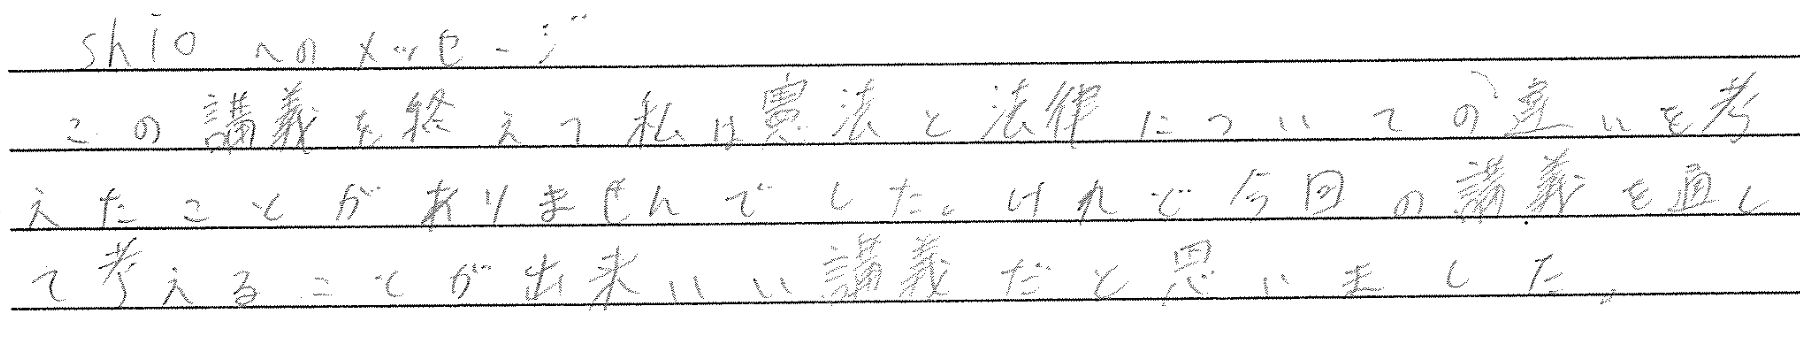 shioへのメッセージ
この講義を終えて私は憲法と法律についての違いを考
えたことがありませんでした。けれど今回の講義を通し
て考えることが出来いい講義だと思いました。